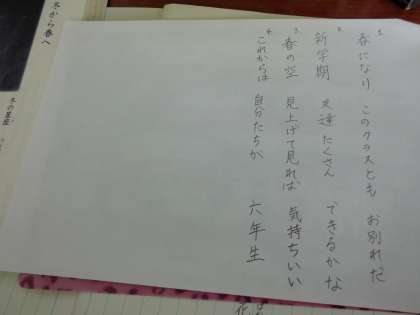 1 春になり このクラスとも お別れだ
2 新学期 友達たくさん できるかな
3 春の空 見上げて見れば 気持ちいい
4 これからは 自分たちが 六年生
冬から春へ
冬の星座